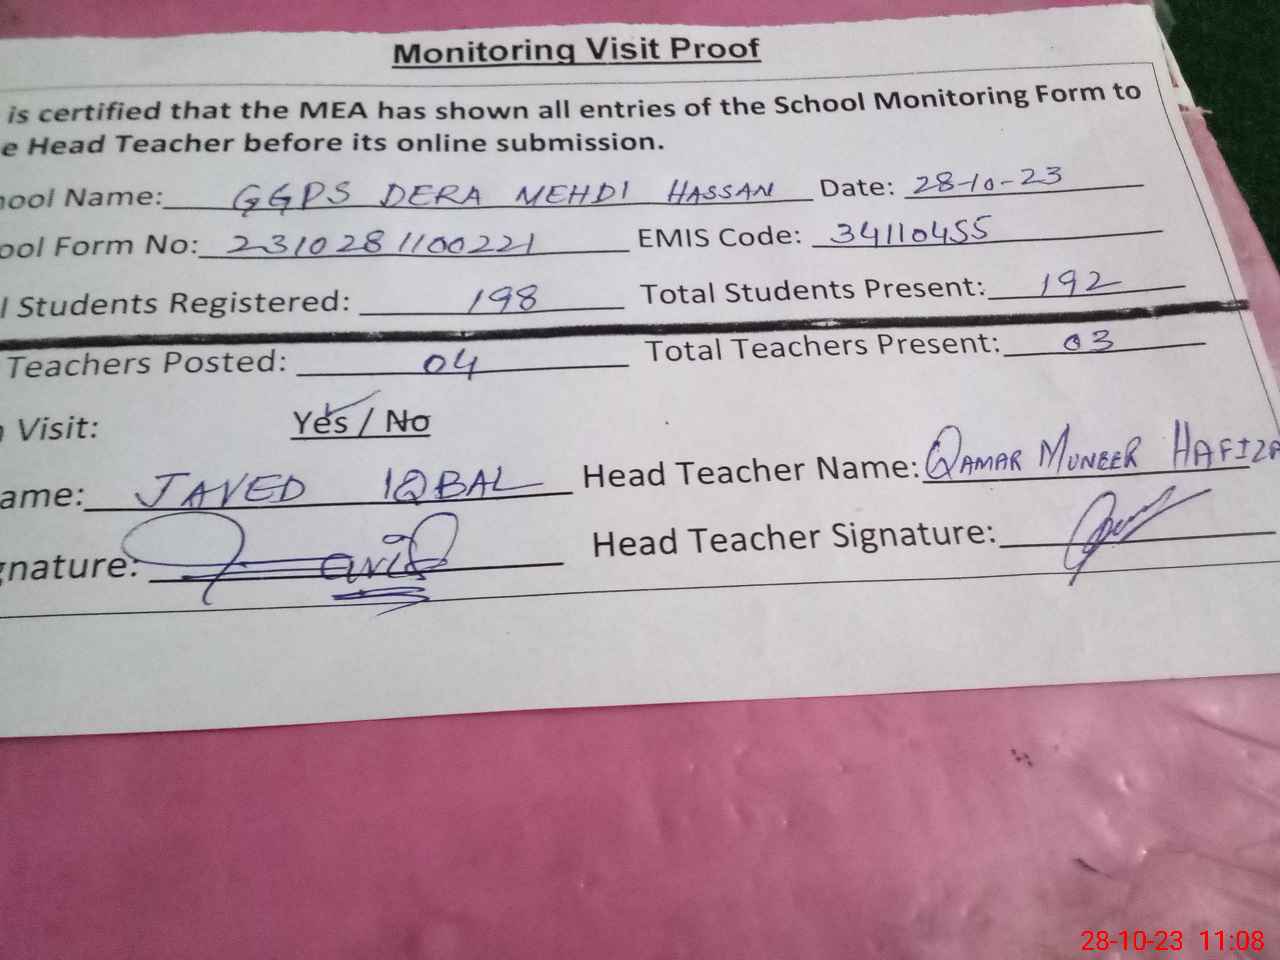 Monitoring Visit Proof
is certified that the MEA has shown all entries of the School Monitoring Form to
e Head Teacher before its online submission.
hool Name: GGPS DERA MEHDI HASSAN Date: 28-10-23
ool Form No: 2310281100221 EMIS Code: 34110455
l Students Registered: 198 Total Students Present: 192
Teachers Posted: 04 Total Teachers Present: 03
Visit: Yes / No
ame: JAVED IQBAL Head Teacher Name: QAMAR MUNEER HAFIZA
gnature: Head Teacher Signature:
28-10-23 11:08